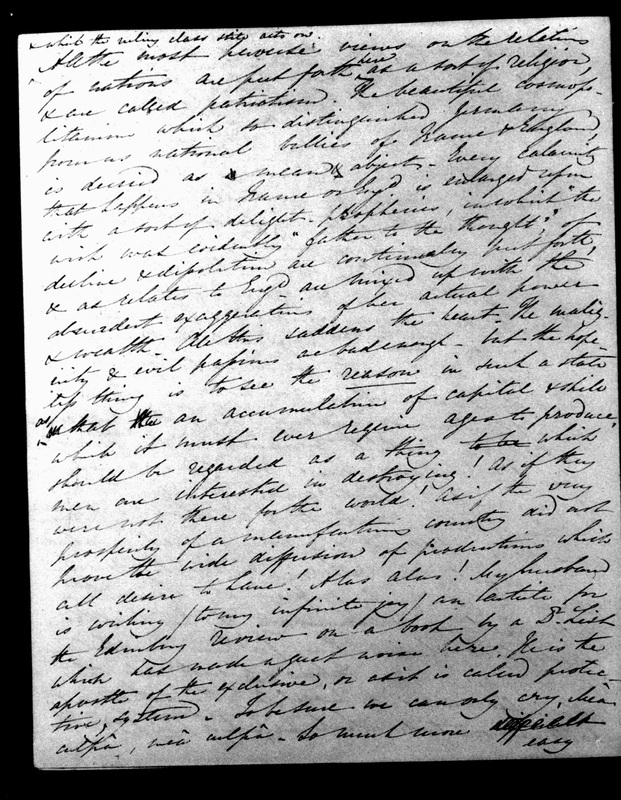 & which the ruling class state acts on.
All the most perverse views on the relations
of nations are put forth here as a sort of religion,
& are called patriotism. The beautiful cosmopo-
litanism which so distinguished Germany
from us national bullies of France & England,
is decried as mean & abject. Every calamity
that happens in France or Engd is enlarged upon
with a sort of delight - prophecies, in which "the
wish was evidently "father to the thought", of
decline & dissolution are continually put forth,
& as relates to Engd are mixed up with the
absurdest exaggerations of her actual power
& wealth. All this saddens the heart. The malig-
nity & evil passions are bad enough - but the hope-
less thing is to see the reason in such a state
as that an accumulation of capital & skill
which it must ever require ages to produce,
should be regarded as a thing which
men are interested in destroying! As if they
were not there for the world! As if the very
prosperity of a manufacturing country did not
prove the wide diffusion of productions which
all desire to have! Alas alas! My husband
is writing (to my infinite joy) an article for
the Edinburg review on a book by a Dr. List
which has made a great noise here. He is the
apostle of the exclusive, or as it is called protec-
tive, system. To be sure we can only cry, meâ
culpâ, meâ culpâ - So much more difficult
easy